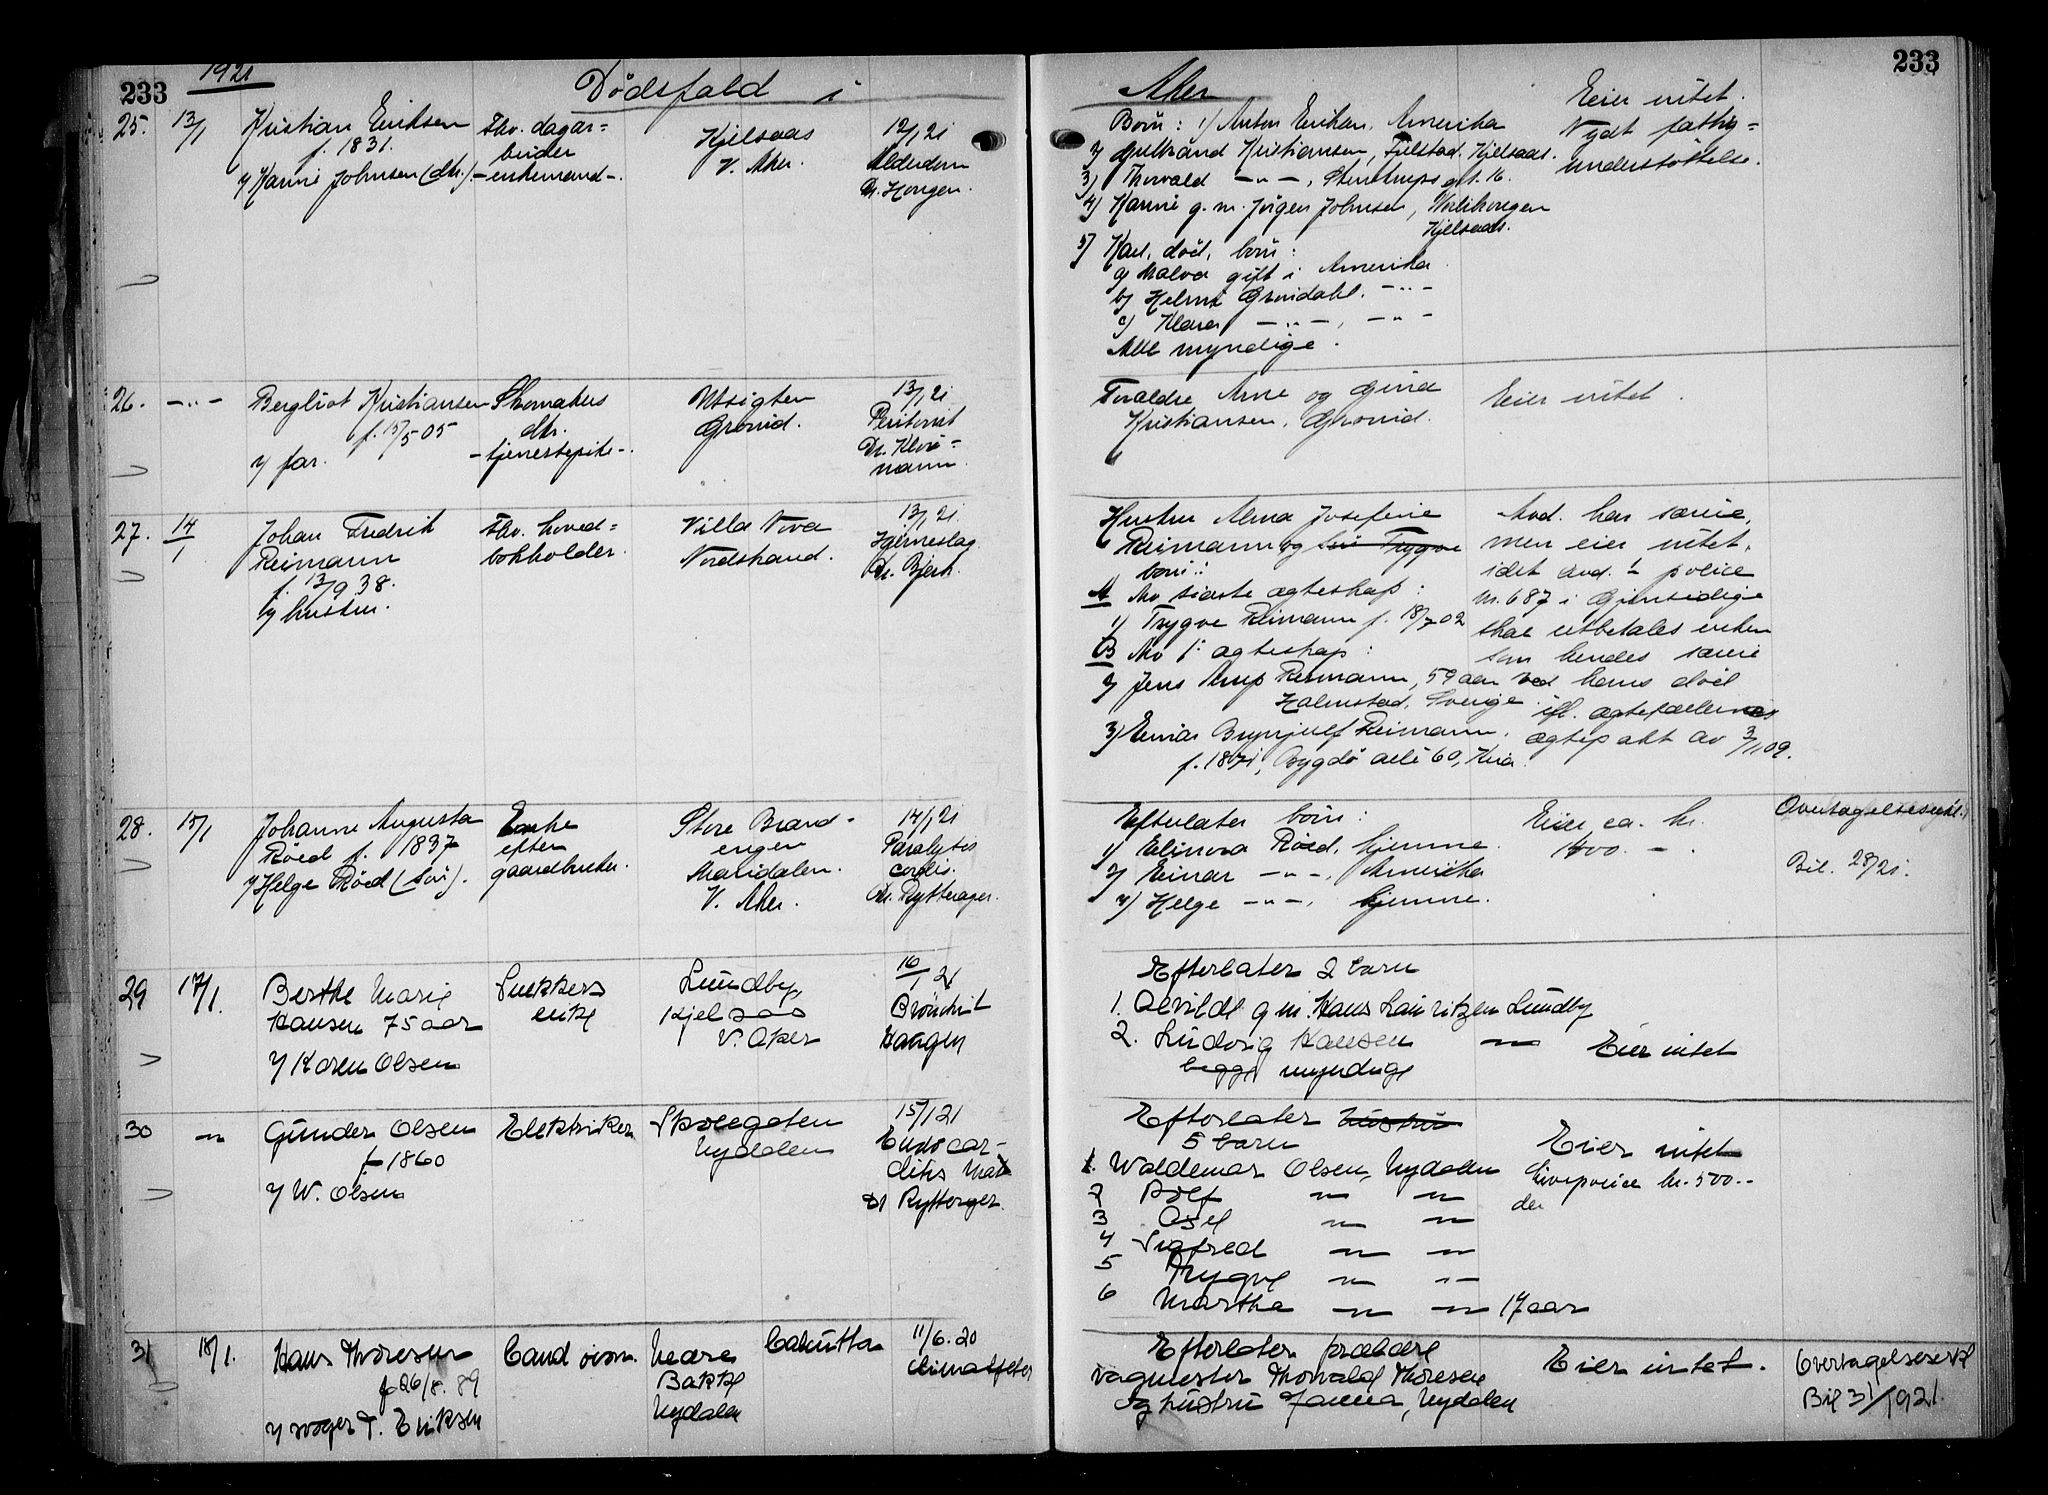 233
1921
Dødsfald i
Aker
233
25.
13/1
Kristian Eriksen
f. 1831.
Fhv. dagar=
beider
- enkemand -.
Kjelsaas
V. Aker
12/1 21
Alderdom
Dr. Hougen.
Børn: 1) Anton Eriksen, Amerika
2) Gulbrand Kristiansen, Fjelstad, Kjelsaas.
3) Thorvald -"-, Stenstrups gt. 16.
4) Karine g. m. Jørgen Johnsen,
Kjelsaas.
5) Karl, død, børn:
a) Malva gift i Amerika
b) Helma Grøndahl. -"-
c) Klara -"-, -"-
Alle myndige.
Eier intet.
Nydt fattig=
understøttelse.
26.
-"-
Bergliot Kristiansen
f. 15/5 05
v/ far.
Skomakers
dtr.
- tjenestepike -.
Utsigten
Grorud.
13/1 21
Peritonit
Forældre Arne og Gina
Kristiansen, Grorud.
Eier intet.
27.
14/1
Johan Fredrik
Reimann
f. 13/9 38.
v/ hustru.
Fhv. hoved=
bokholder.
Villa Viva
Nordstrand.
13/1 21
Hjerneslag
Dr. Bjerk.
Hustru Alma Josefine
Reimann og søn Trygve
børn:
A Av sidste ægteskap:
1) Trygve Reimann f. 18/7 02
B Av 1. ægteskap:
2) Jens Arup Reimann, 59 aar
Halmstad, Sverige.
3) Einar Brynjulf Reimann,
f. 1871, Bygdø allé 60, Kria.
Avd. har særeie,
men eier intet,
idet avd.s police
nr. 687 i Gjensidige
skal utbetales enken
som hendes særeie
ved hans død
ifl. ægtefællernes
ægtepakt av 3/11 09.
28.
15/1
Johanne Augusta
Røed f. 1837
v/ Helge Røed (søn).
Enke
efter
gaardbruker.
Store Brand-
engen
Maridalen.
V. Aker.
14/1 21
Paralysis
cordis.
Dr. Rytterager.
Efterlater børn:
1) Elinora Røed, hjemme.
2) Einar -"-, Amerika
3) Helge -"-, hjemme.
Eier ca. kr.
1400. -.
Overtagelseserkl.
Bil. 28/21.
29
17/1.
Berthe Marie
Hansen 75 aar
v/ Karen Olsen
Snekkers
enke
Lundby
Kjelsaas
V. Aker
16/1 21
Bronchit
Haugen
Efterlater 2 barn
1. Alvilde g m. Hans Lauritzen Lundby
2. Ludvig Hansen -"-
begge myndige
Eier intet
30
-"-
Gunder Olsen
f 1860
v/ W. Olsen
Elektriker
Skolegaten
Nydalen
15/1 21
Endocar-
ditis
Dr Rytterager.
Efterlater hustru
5 barn
1. Waldemar Olsen, Nydalen
2 Rolf -"- -"-
3 Osef -"- -"-
4 Sigfred -"- -"-
5 Trygve -"- -"-
6 Martha -"- -"- 17 aar
Eier intet
Livspolice kr. 500.-
31
18/1.
Hans Thoresen
f 26/8. 89
v/ svoger T. Eriksen
Cand. oecon.
Nedre
Bakke
Nydalen
Calcutta
11/6. 20
Klimatfeber
Efterlater forældre
vagmester Thorvald Thoresen
og hustru Janna, Nydalen
Eier intet.
Overtagelseserkl
Bil 31/1921.